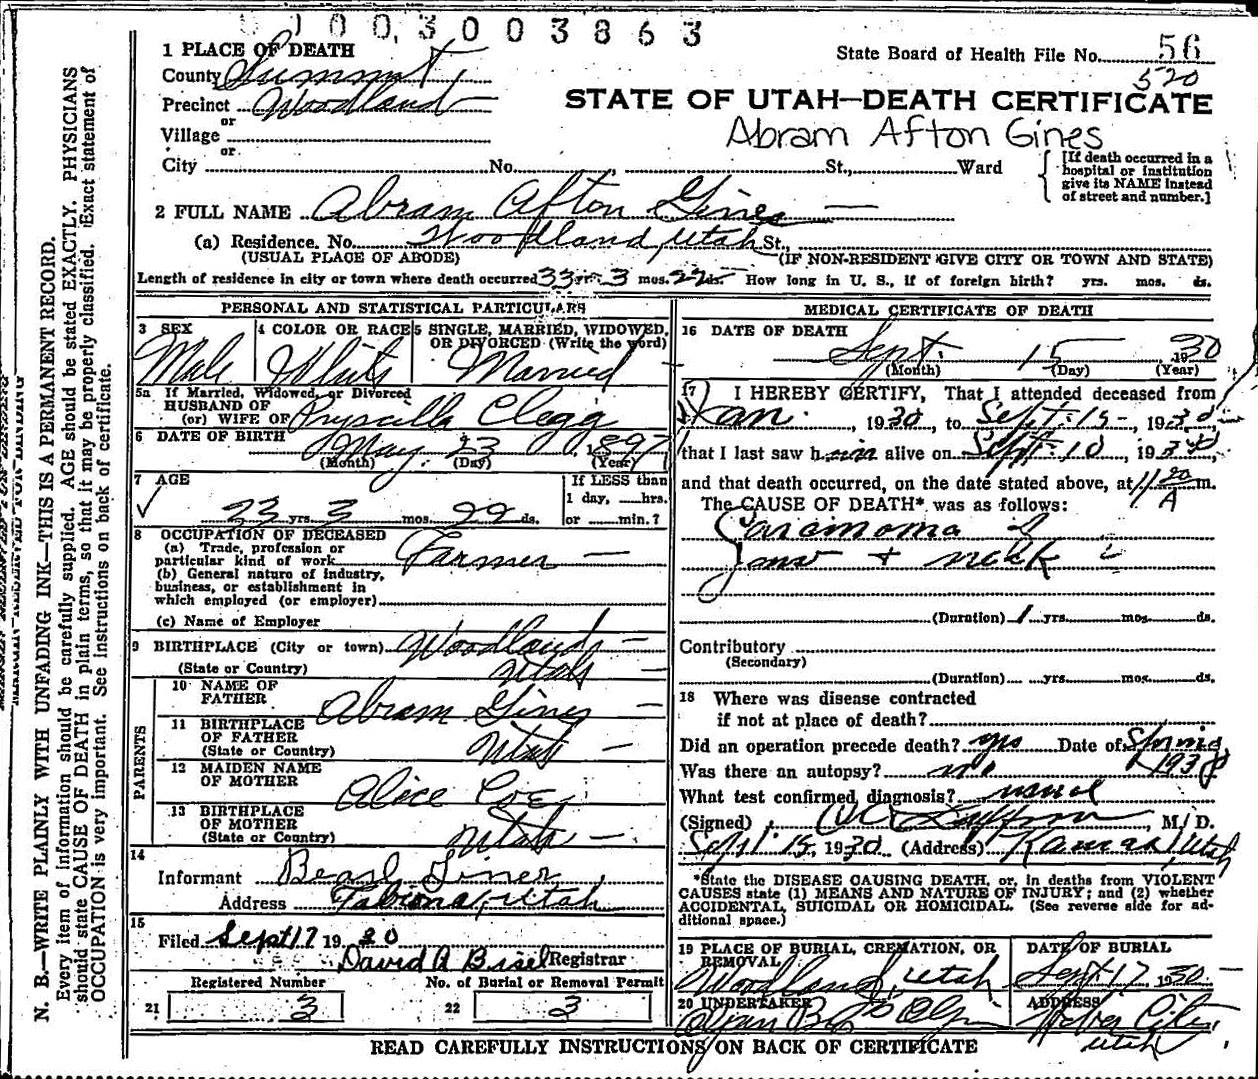 1003003863
1 PLACE OF DEATH
State Board of Health File No. 56
520
County Summit
Precinct Woodland
or
Village
or
City No. St., Ward
STATE OF UTAH—DEATH CERTIFICATE
Abram Afton Gines
[If death occurred in a hospital or institution give its NAME instead of street and number.]
2 FULL NAME Abram Afton Gines
(a) Residence. No. Woodland, Utah St.,
(USUAL PLACE OF ABODE) (IF NON-RESIDENT GIVE CITY OR TOWN AND STATE)
Length of residence in city or town where death occurred 33 yrs. 3 mos. 22 ds. How long in U. S., if of foreign birth? yrs. mos. ds.
PERSONAL AND STATISTICAL PARTICULARS
3 SEX 4 COLOR OR RACE 5 SINGLE, MARRIED, WIDOWED, OR DIVORCED (Write the word)
Male White Married
5a If Married, Widowed, or Divorced
HUSBAND OF
(or) WIFE OF Pryscilla Clegg
6 DATE OF BIRTH May 23 1897
(Month) (Day) (Year)
7 AGE If LESS than
1 day, hrs.
23 yrs. 3 mos. 22 ds. or min.?
8 OCCUPATION OF DECEASED
(a) Trade, profession or
particular kind of work Farmer
(b) General nature of industry,
business, or establishment in
which employed (or employer)
(c) Name of Employer
9 BIRTHPLACE (City or town) Woodland
(State or Country) Utah
PARENTS
10 NAME OF
FATHER Abram Gines
11 BIRTHPLACE
OF FATHER
(State or Country) Utah
12 MAIDEN NAME
OF MOTHER Alice Coe
13 BIRTHPLACE
OF MOTHER
(State or Country) Utah
14
Informant Gines
Address Tabiona, Utah
15
Filed Sept 17 1930
David A Registrar
Registered Number No. of Burial or Removal Permit
21 3 22 3
MEDICAL CERTIFICATE OF DEATH
16 DATE OF DEATH
Sept. 15 1930
(Month) (Day) (Year)
17 I HEREBY CERTIFY, That I attended deceased from
Jan. , 1930, to Sept. 15, 1930,
that I last saw him alive on Sept. 10, 1930,
and that death occurred, on the date stated above, at 11 20 A m.
The CAUSE OF DEATH* was as follows:
Carcinoma of
Jaw + neck
(Duration) 1 yrs. mos. ds.
Contributory
(Secondary)
(Duration) yrs. mos. ds.
18 Where was disease contracted
if not at place of death?
Did an operation precede death? yes Date of Spring
1930
Was there an autopsy? no
What test confirmed diagnosis? usual
(Signed) , M. D.
Sept 15, 1930 (Address) Kamas, Utah
*State the DISEASE CAUSING DEATH, or, in deaths from VIOLENT
CAUSES state (1) MEANS AND NATURE OF INJURY; and (2) whether
ACCIDENTAL, SUICIDAL OR HOMICIDAL. (See reverse side for ad-
ditional space.)
19 PLACE OF BURIAL, CREMATION, OR REMOVAL DATE OF BURIAL
Woodland, Utah Sept. 17 1930
20 UNDERTAKER ADDRESS
Heber City,
Utah
READ CAREFULLY INSTRUCTIONS ON BACK OF CERTIFICATE
N. B.—WRITE PLAINLY WITH UNFADING INK—THIS IS A PERMANENT RECORD.
Every item of information should be carefully supplied. AGE should be stated EXACTLY. PHYSICIANS
should state CAUSE OF DEATH in plain terms, so that it may be properly classified. Exact statement of
OCCUPATION is very important. See instructions on back of certificate.